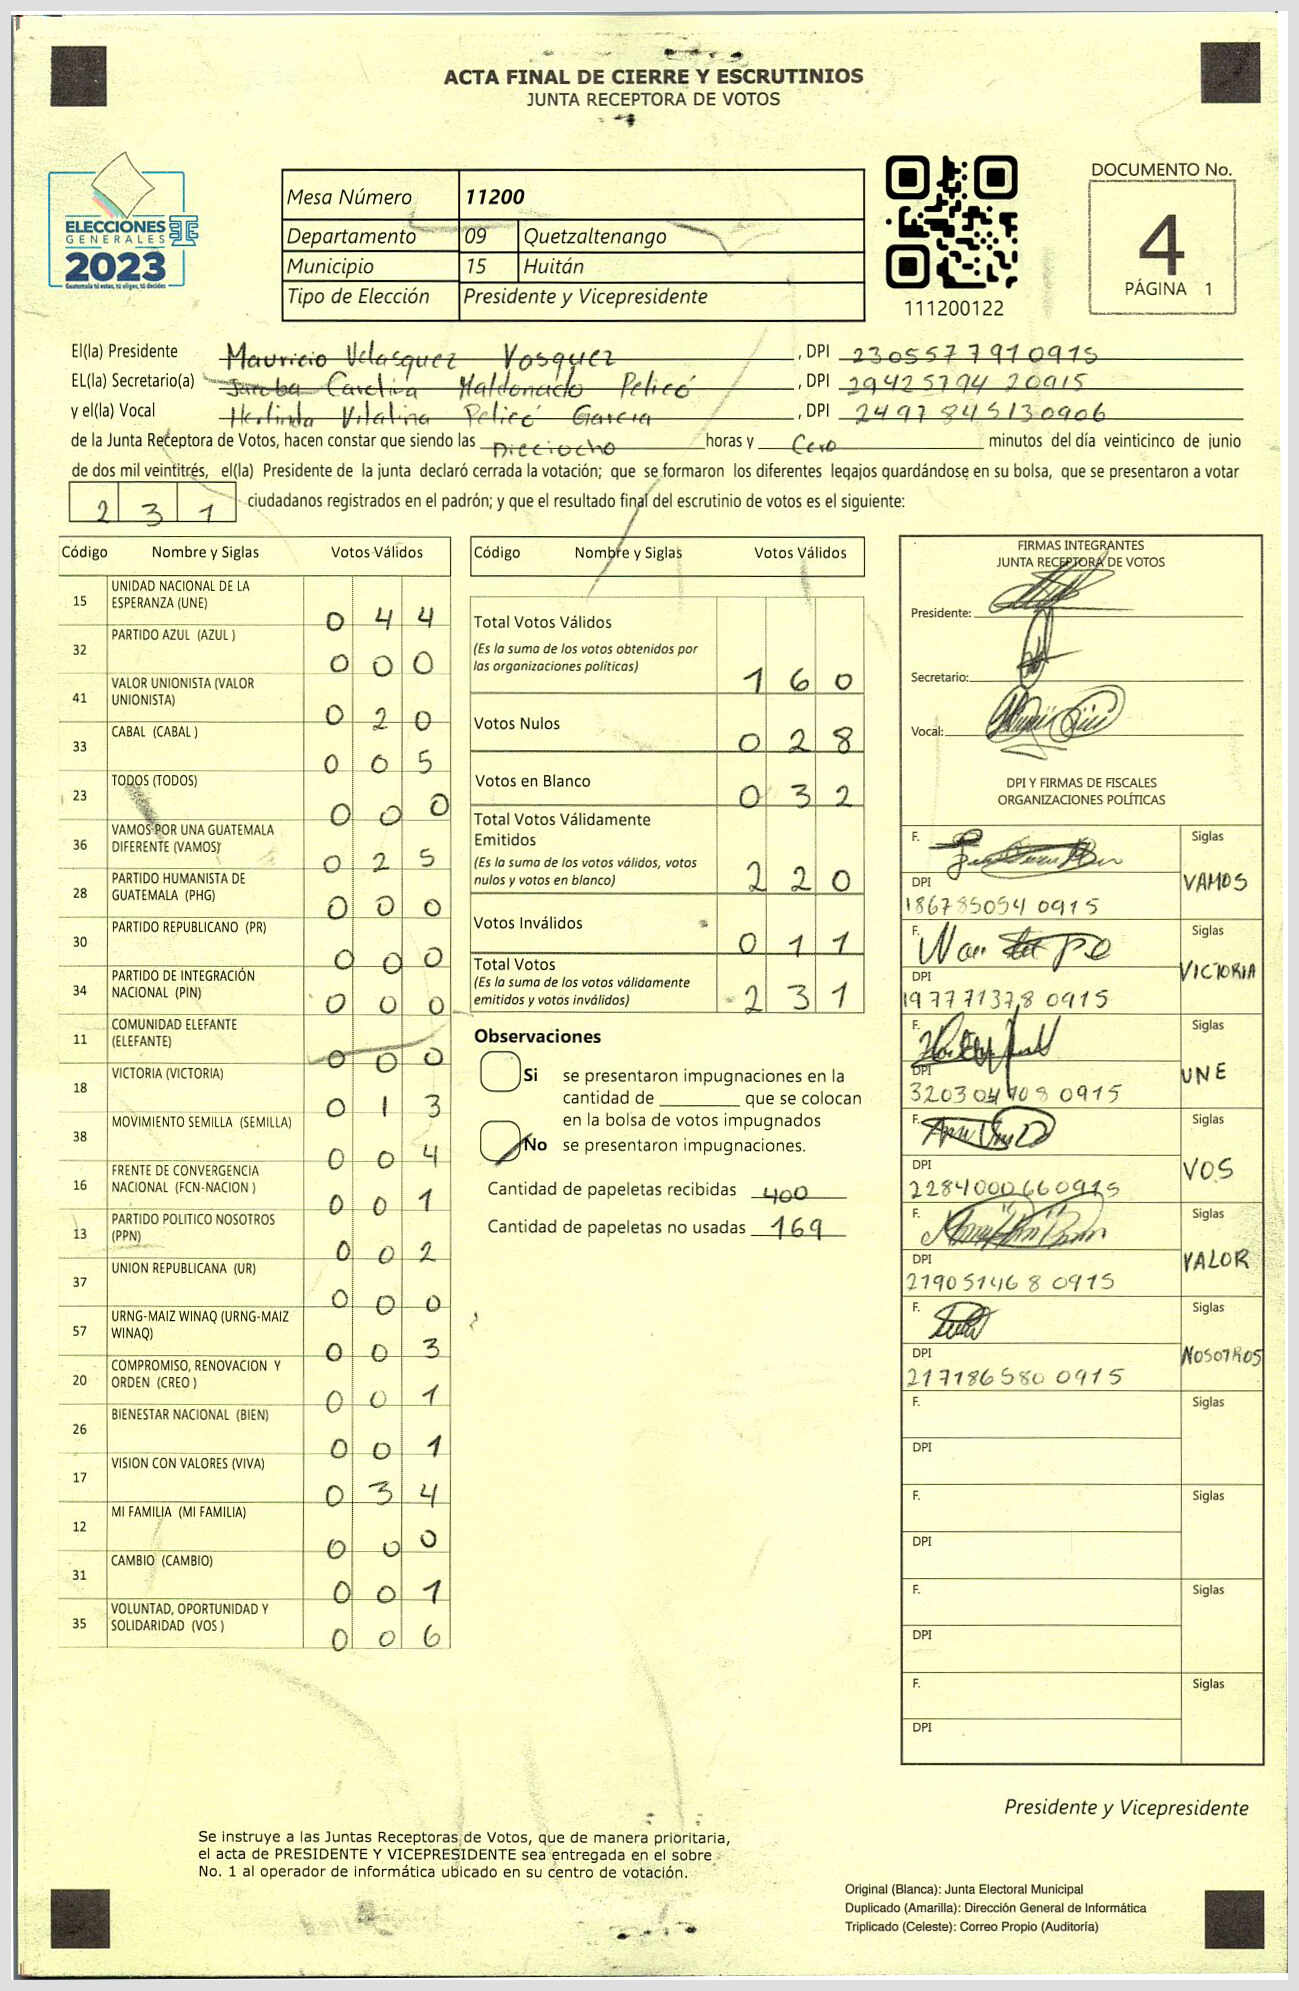 ACTA FINAL DE CIERRE Y ESCRUTINIOS
JUNTA RECEPTORA DE VOTOS
ELECCIONES
GENERALES
2023
Guatemala tú estas, tú eliges, tú decides
Mesa Número 11200
Departamento 09 Quetzaltenango
Municipio 15 Huitán
Tipo de Elección Presidente y Vicepresidente
111200122
DOCUMENTO No.
4
PÁGINA 1
El(la) Presidente Mauricio Velasquez Vasquez , DPI 2305577910915
EL(la) Secretario(a) Carolina Maldonado Pelicó , DPI 29425794 20915
y el(la) Vocal Herlinda Vitalina Pelicó Garcia , DPI 2497845130906
de la Junta Receptora de Votos, hacen constar que siendo las Dieciocho horas y Cero minutos del día veinticinco de junio
de dos mil veintitrés, el(la) Presidente de la junta declaró cerrada la votación; que se formaron los diferentes legajos guardándose en su bolsa, que se presentaron a votar
231 ciudadanos registrados en el padrón; y que el resultado final del escrutinio de votos es el siguiente:
Código Nombre y Siglas Votos Válidos
15 UNIDAD NACIONAL DE LA
ESPERANZA (UNE) 044
32 PARTIDO AZUL (AZUL ) 000
41 VALOR UNIONISTA (VALOR
UNIONISTA) 020
33 CABAL (CABAL ) 005
23 TODOS (TODOS) 000
36 VAMOS POR UNA GUATEMALA
DIFERENTE (VAMOS) 025
28 PARTIDO HUMANISTA DE
GUATEMALA (PHG) 000
30 PARTIDO REPUBLICANO (PR) 000
34 PARTIDO DE INTEGRACIÓN
NACIONAL (PIN) 000
11 COMUNIDAD ELEFANTE
(ELEFANTE) 000
18 VICTORIA (VICTORIA) 013
38 MOVIMIENTO SEMILLA (SEMILLA) 004
16 FRENTE DE CONVERGENCIA
NACIONAL (FCN-NACION ) 001
13 PARTIDO POLITICO NOSOTROS
(PPN) 002
37 UNION REPUBLICANA (UR) 000
57 URNG-MAIZ WINAQ (URNG-MAIZ
WINAQ) 003
20 COMPROMISO, RENOVACION Y
ORDEN (CREO ) 001
26 BIENESTAR NACIONAL (BIEN) 001
17 VISION CON VALORES (VIVA) 034
12 MI FAMILIA (MI FAMILIA) 000
31 CAMBIO (CAMBIO) 001
35 VOLUNTAD, OPORTUNIDAD Y
SOLIDARIDAD (VOS ) 006
Código Nombre y Siglas Votos Válidos
Total Votos Válidos
(Es la suma de los votos obtenidos por
las organizaciones políticas) 160
Votos Nulos 028
Votos en Blanco 032
Total Votos Válidamente
Emitidos
(Es la suma de los votos válidos, votos
nulos y votos en blanco) 220
Votos Inválidos 011
Total Votos
(Es la suma de los votos válidamente
emitidos y votos inválidos) 231
Observaciones
Si se presentaron impugnaciones en la
cantidad de ________ que se colocan
en la bolsa de votos impugnados
No se presentaron impugnaciones.
Cantidad de papeletas recibidas 400
Cantidad de papeletas no usadas 169
FIRMAS INTEGRANTES
JUNTA RECEPTORA DE VOTOS
Presidente:
Secretario:
Vocal:
DPI Y FIRMAS DE FISCALES
ORGANIZACIONES POLÍTICAS
F. Siglas
VAMOS
DPI
186785054 0915
F. Siglas
VICTORIA
DPI
197771378 0915
F. Siglas
UNE
DPI
320304708 0915
F. Siglas
VOS
DPI
2284000660915
F. Siglas
VALOR
DPI
219051468 0915
F. Siglas
NOSOTROS
DPI
217186580 0915
F. Siglas
DPI
F. Siglas
DPI
F. Siglas
DPI
F. Siglas
DPI
Presidente y Vicepresidente
Se instruye a las Juntas Receptoras de Votos, que de manera prioritaria,
el acta de PRESIDENTE Y VICEPRESIDENTE sea entregada en el sobre
No. 1 al operador de informática ubicado en su centro de votación.
Original (Blanca): Junta Electoral Municipal
Duplicado (Amarilla): Dirección General de Informática
Triplicado (Celeste): Correo Propio (Auditoría)